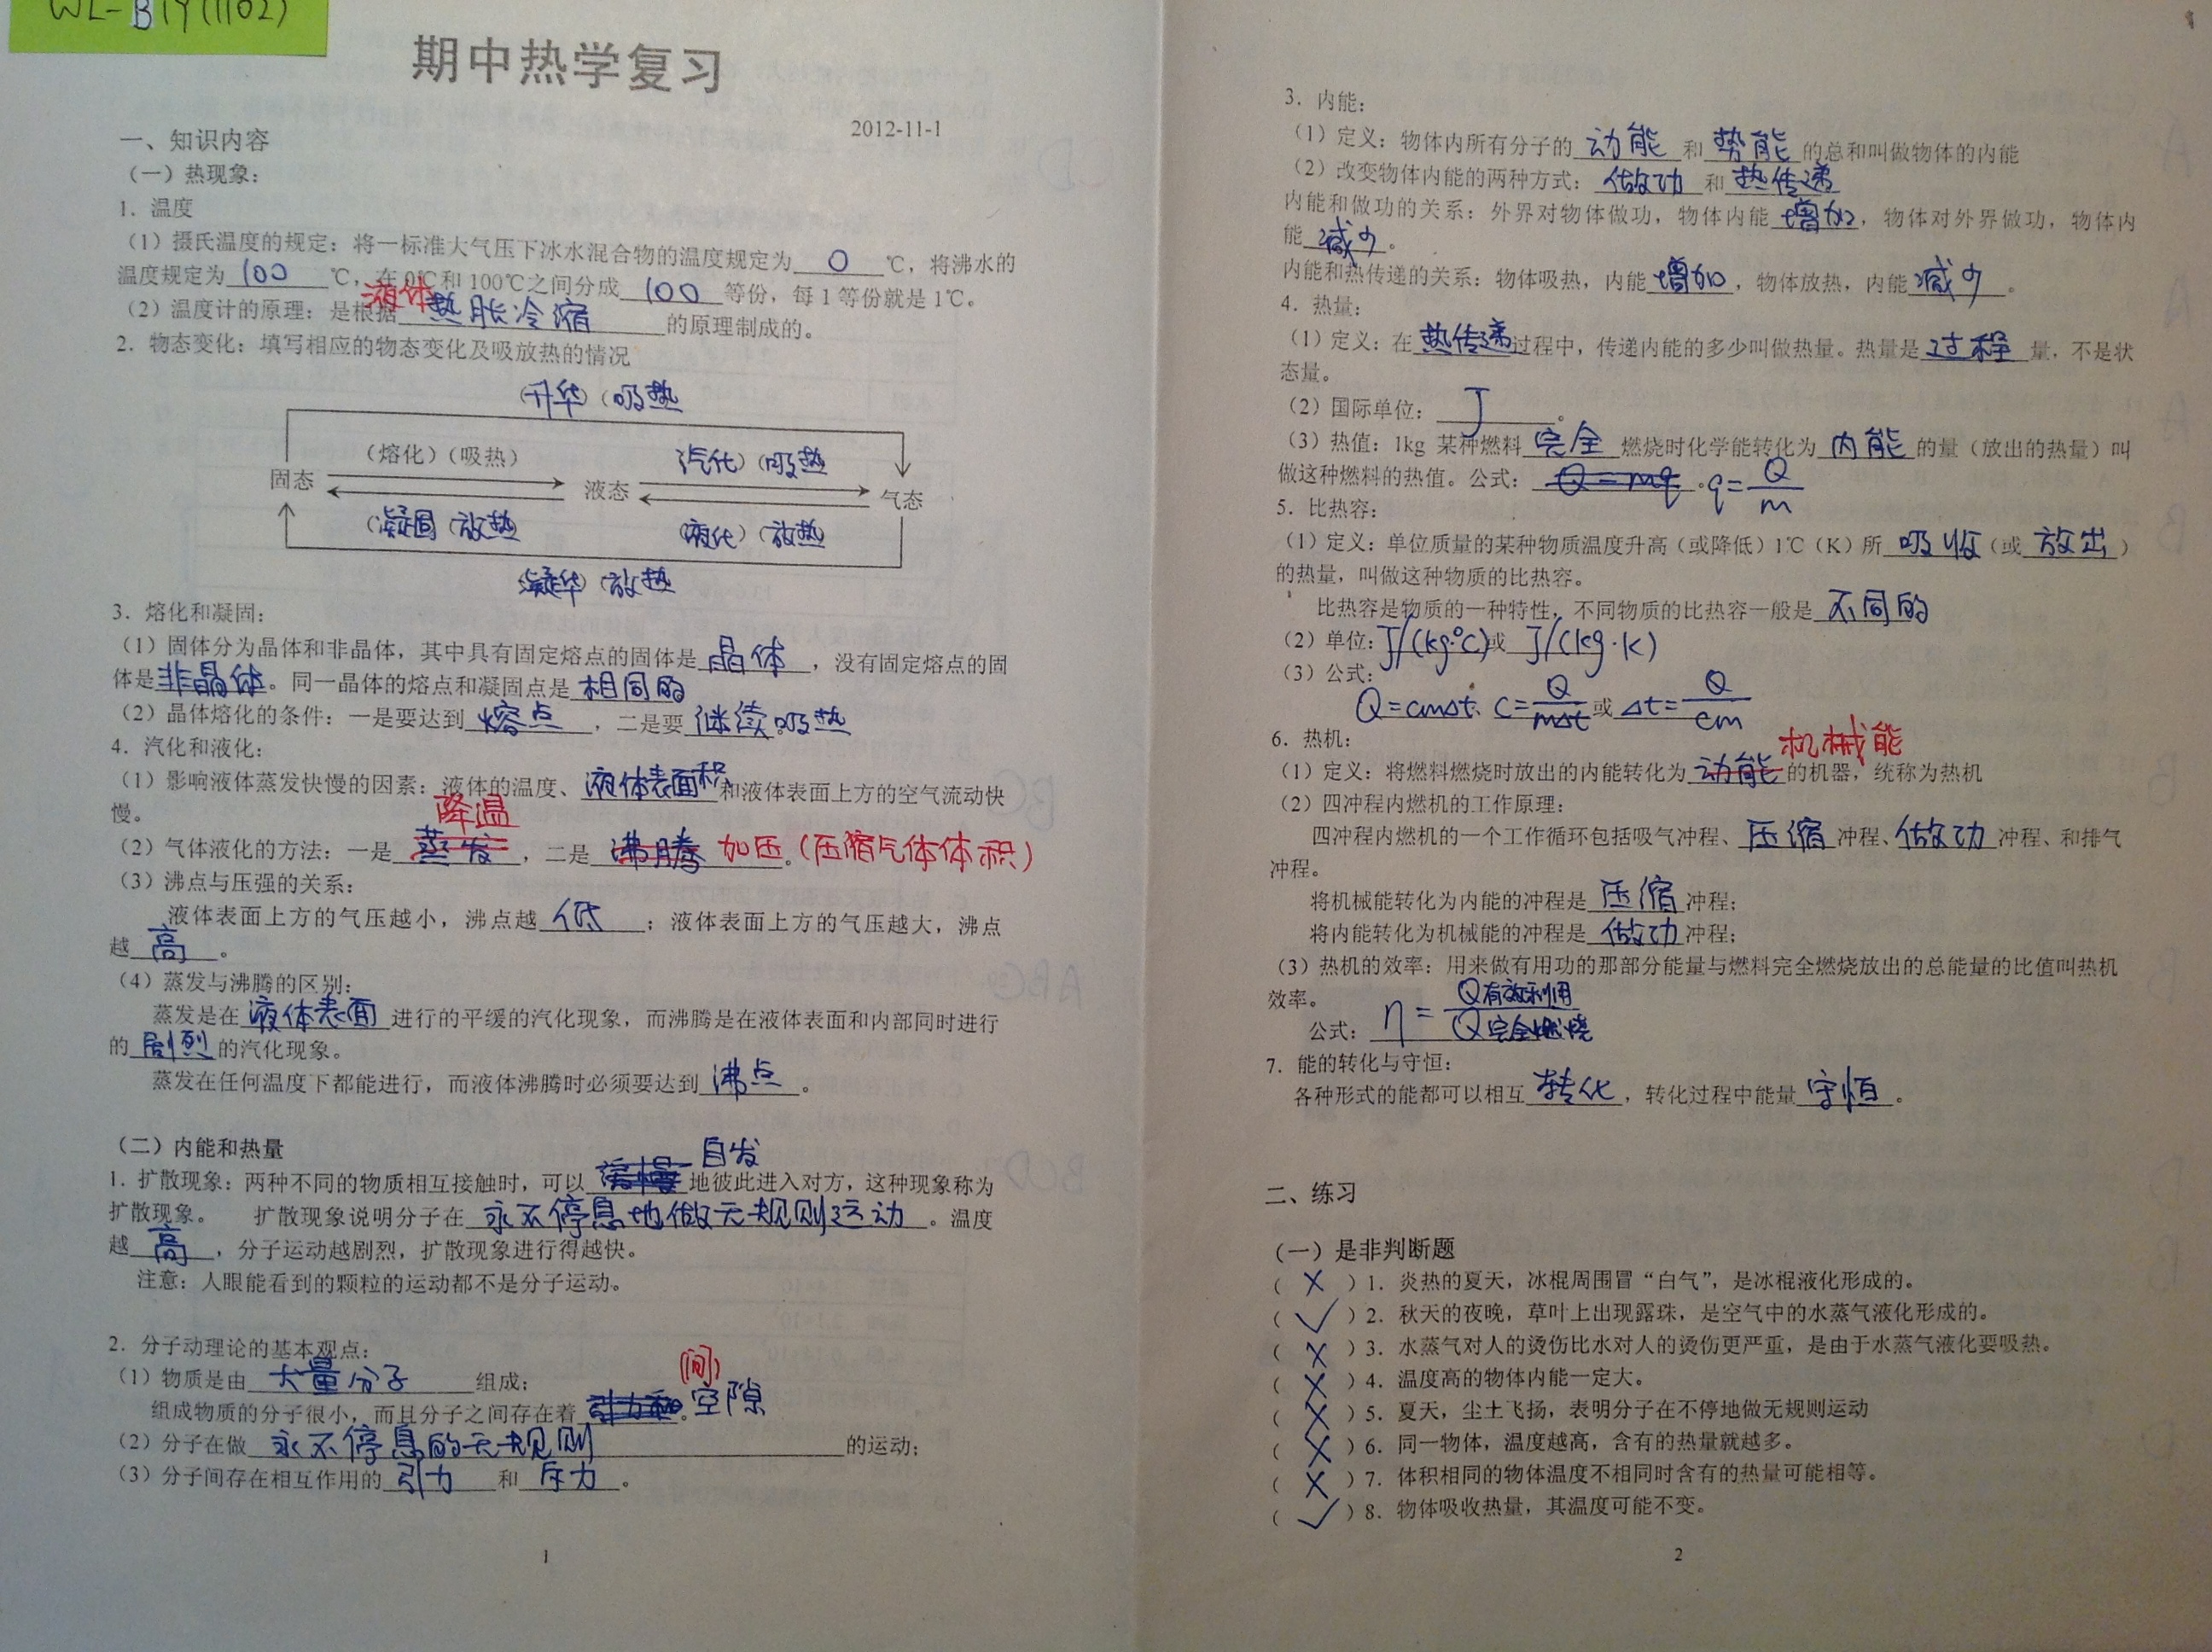 WL-B19(1102)
期中热学复习
2012-11-1
一、知识内容
（一）热现象：
1. 温度
（1）摄氏温度的规定：将一标准大气压下冰水混合物的温度规定为 0 ℃，将沸水的
温度规定为 100 ℃，在0℃和100℃之间分成 100 等份，每1等份就是1℃。
（2）温度计的原理：是根据 液体热胀冷缩 的原理制成的。
2. 物态变化：填写相应的物态变化及吸放热的情况
（升华）（吸热）
（熔化）（吸热） （汽化）（吸热）
固态 液态 气态
（凝固）（放热） （液化）（放热）
（凝华）（放热）
3. 熔化和凝固：
（1）固体分为晶体和非晶体，其中具有固定熔点的固体是 晶体 ，没有固定熔点的固
体是 非晶体 。同一晶体的熔点和凝固点是 相同的
（2）晶体熔化的条件：一是要达到 熔点 ，二是要 继续吸热
4. 汽化和液化：
（1）影响液体蒸发快慢的因素：液体的温度、液体表面积 和液体表面上方的空气流动快
慢。
降温
（2）气体液化的方法：一是 蒸发 ，二是 沸腾 加压。（压缩气体体积）
（3）沸点与压强的关系：
液体表面上方的气压越小，沸点越 低 ；液体表面上方的气压越大，沸点
越 高 。
（4）蒸发与沸腾的区别：
蒸发是在 液体表面 进行的平缓的汽化现象，而沸腾是在液体表面和内部同时进行
的 剧烈 的汽化现象。
蒸发在任何温度下都能进行，而液体沸腾时必须要达到 沸点 。
（二）内能和热量
自发
1. 扩散现象：两种不同的物质相互接触时，可以 地彼此进入对方，这种现象称为
扩散现象。 扩散现象说明分子在 永不停息地做无规则运动 。温度
越 高 ，分子运动越剧烈，扩散现象进行得越快。
注意：人眼能看到的颗粒的运动都不是分子运动。
2. 分子动理论的基本观点：
（1）物质是由 大量分子 组成；
（间）
组成物质的分子很小，而且分子之间存在着 。空隙
（2）分子在做 永不停息的无规则 的运动；
（3）分子间存在相互作用的 引力 和 斥力 。
1
3. 内能：
（1）定义：物体内所有分子的 动能 和 势能 的总和叫做物体的内能
（2）改变物体内能的两种方式： 做功 和 热传递
内能和做功的关系：外界对物体做功，物体内能 增加 ，物体对外界做功，物体内
能 减少 。
内能和热传递的关系：物体吸热，内能 增加 ，物体放热，内能 减少 。
4. 热量：
（1）定义：在 热传递 过程中，传递内能的多少叫做热量。热量是 过程 量，不是状
态量。
（2）国际单位： J 。
（3）热值：1kg 某种燃料 完全 燃烧时化学能转化为 内能 的量（放出的热量）叫
做这种燃料的热值。公式： Q=mq 。q=Q/m
5. 比热容：
（1）定义：单位质量的某种物质温度升高（或降低）1℃（K）所 吸收 （或 放出 ）
的热量，叫做这种物质的比热容。
比热容是物质的一种特性，不同物质的比热容一般是 不同的
（2）单位：J/(kg·℃)或 J/(kg·K)
（3）公式：
Q=cmΔt、c=Q/mΔt 或 Δt=Q/cm
6. 热机：
机械能
（1）定义：将燃料燃烧时放出的内能转化为 动能 的机器，统称为热机
（2）四冲程内燃机的工作原理：
四冲程内燃机的一个工作循环包括吸气冲程、 压缩 冲程、 做功 冲程、和排气
冲程。
将机械能转化为内能的冲程是 压缩 冲程；
将内能转化为机械能的冲程是 做功 冲程；
（3）热机的效率：用来做有用功的那部分能量与燃料完全燃烧放出的总能量的比值叫热机
效率。
公式： η=Q有效利用/Q完全燃烧
7. 能的转化与守恒：
各种形式的能都可以相互 转化 ，转化过程中能量 守恒 。
二、练习
（一）是非判断题
（ × ）1. 炎热的夏天，冰棍周围冒“白气”，是冰棍液化形成的。
（ ✓ ）2. 秋天的夜晚，草叶上出现露珠，是空气中的水蒸气液化形成的。
（ × ）3. 水蒸气对人的烫伤比水对人的烫伤更严重，是由于水蒸气液化要吸热。
（ × ）4. 温度高的物体内能一定大。
（ × ）5. 夏天，尘土飞扬，表明分子在不停地做无规则运动
（ × ）6. 同一物体，温度越高，含有的热量就越多。
（ × ）7. 体积相同的物体温度不相同时含有的热量可能相等。
（ ✓ ）8. 物体吸收热量，其温度可能不变。
2